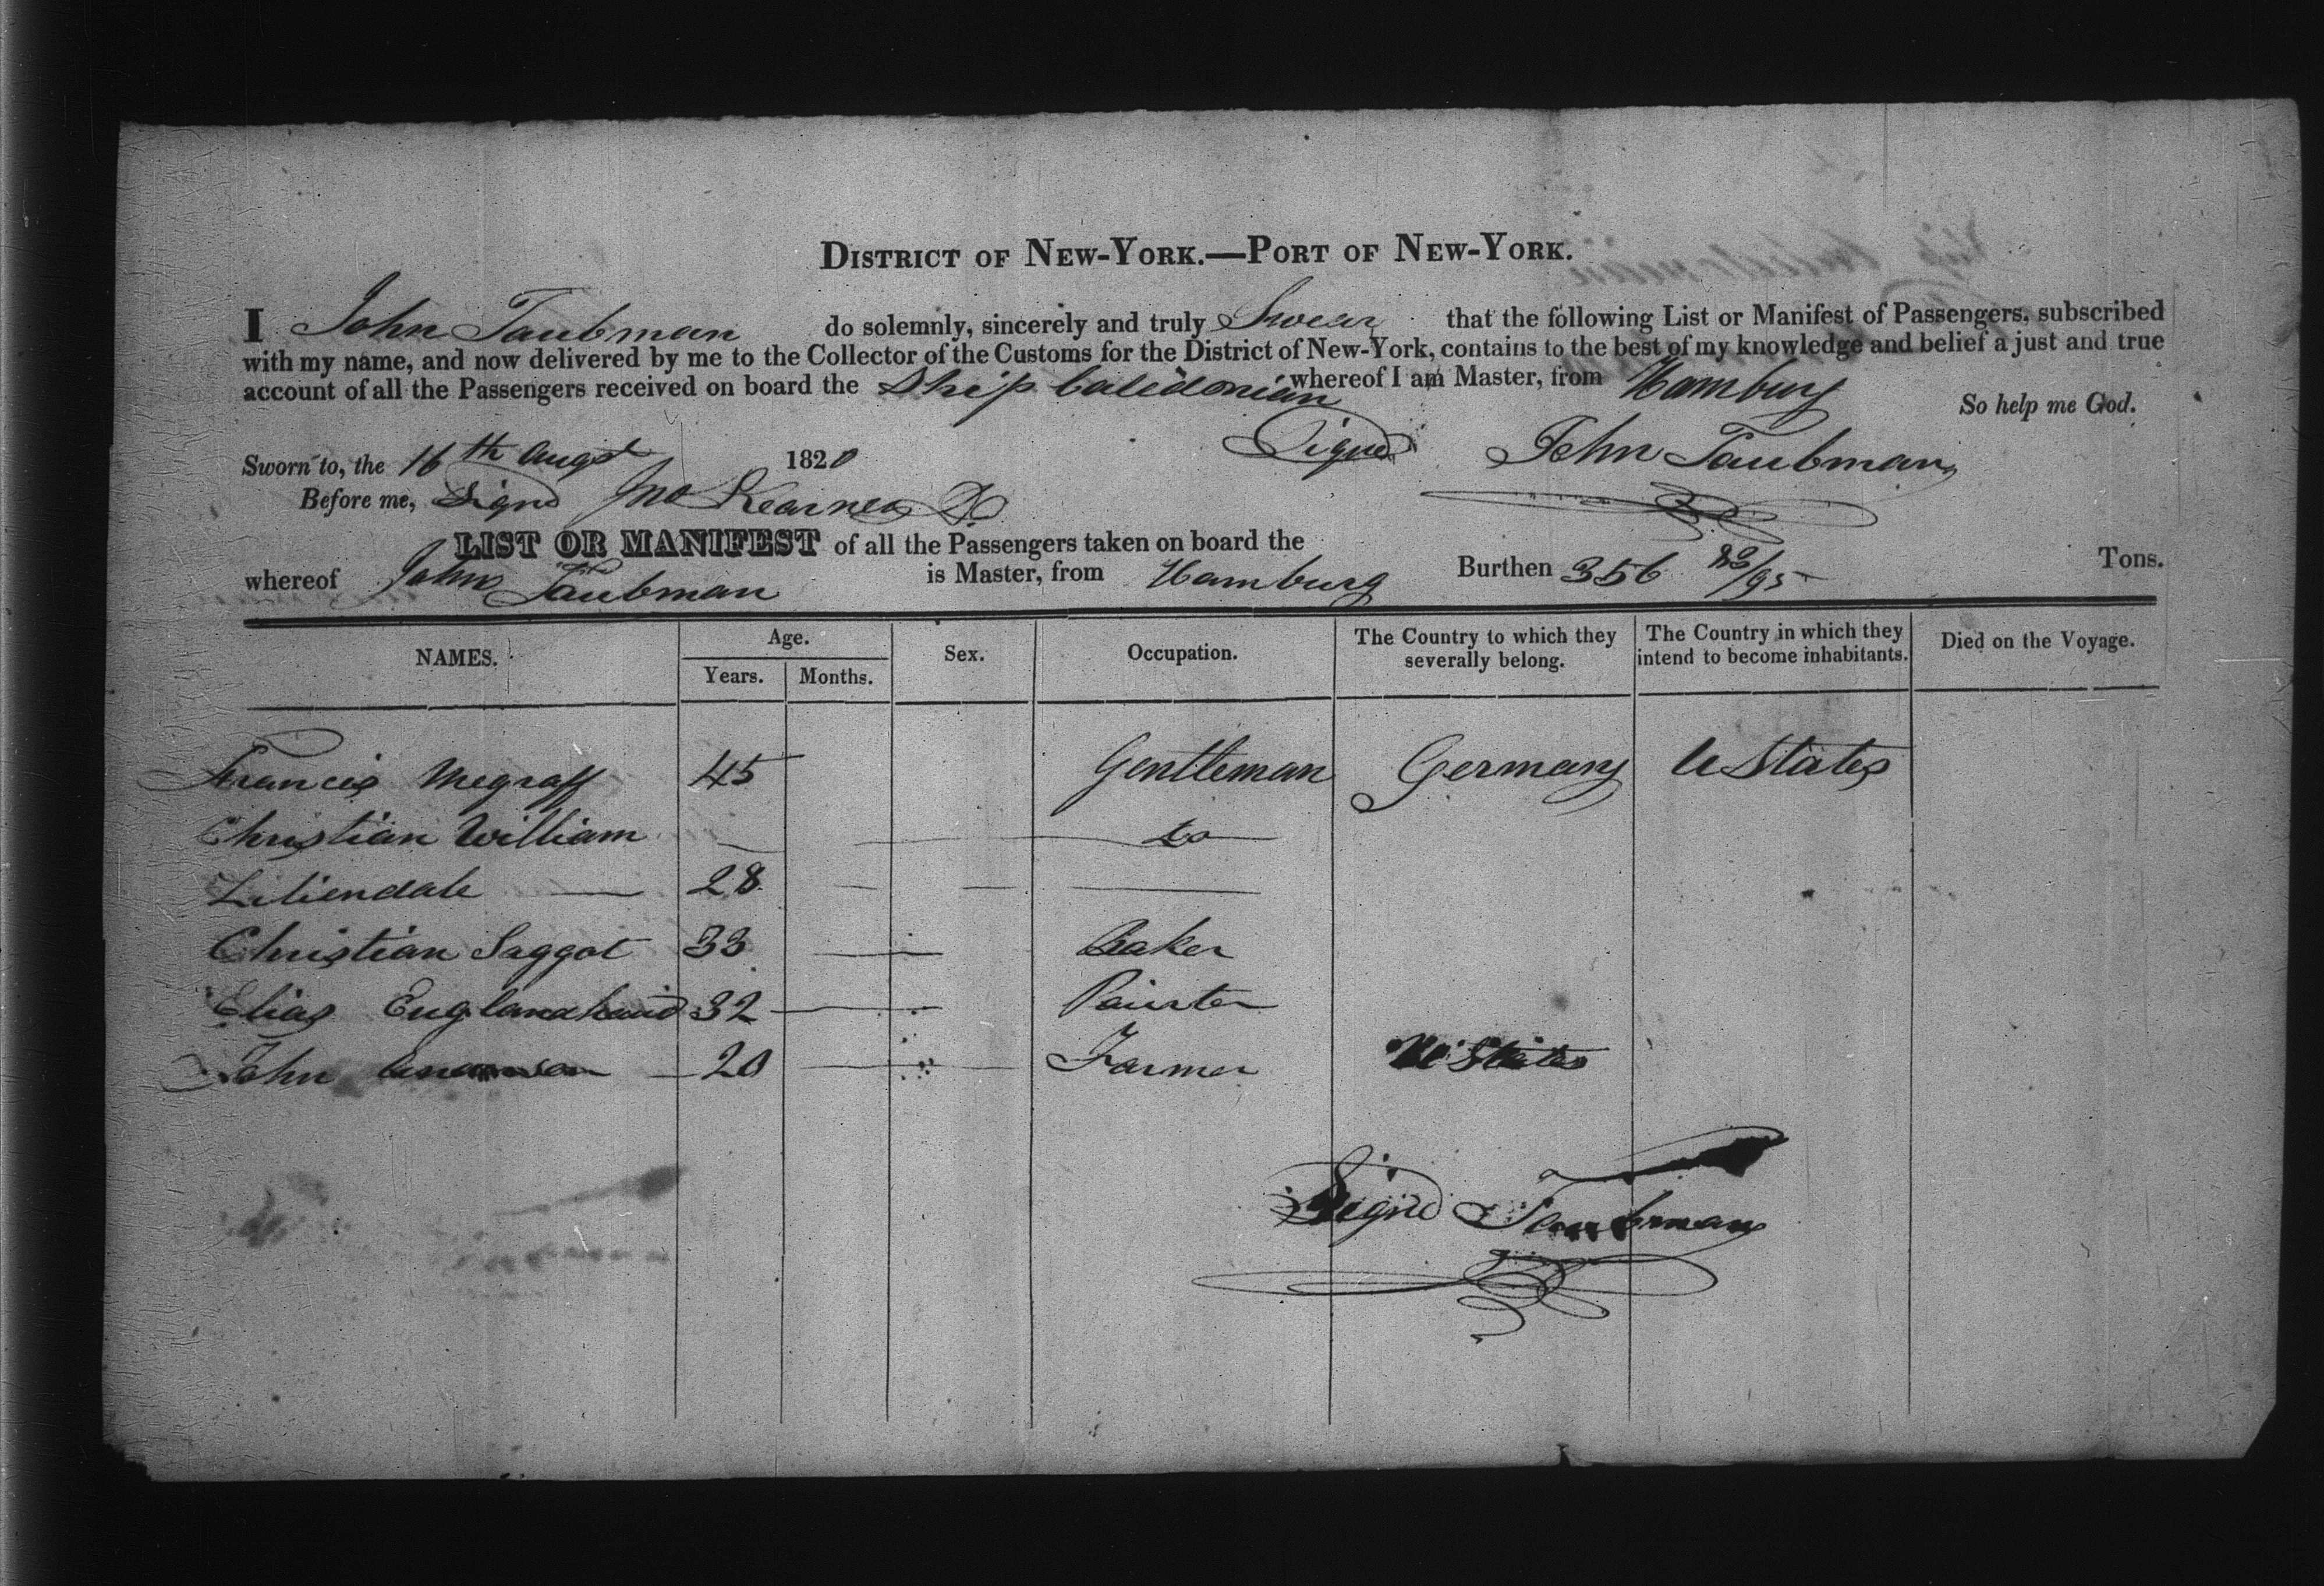 DISTRICT OF NEW-YORK.—PORT OF NEW-YORK.
I John Taubman do solemnly, sincerely and truly Swear that the following List or Manifest of Passengers, subscribed
with my name, and now delivered by me to the Collector of the Customs for the District of New-York, contains to the best of my knowledge and belief a just and true
account of all the Passengers received on board the Ship Caledonian whereof I am Master, from Hamburg
So help me God.
Sworn to, the 16th Augst 1820 Signd John Taubman
Before me, Signd Jno Kearney
LIST OR MANIFEST of all the Passengers taken on board the
whereof John Taubman is Master, from Hamburg Burthen 356 /95 Tons.
NAMES. Age. Years. Months. Sex. Occupation. The Country to which they severally belong. The Country in which they intend to become inhabitants. Died on the Voyage.
Francis Megraff 45 Gentleman Germany U States
Christian William — do
Liliendale — 28 — — —
Christian Saggot 33 — Baker
Elias 32 — Painter
John 20 — Farmer U States
Signd Taubman